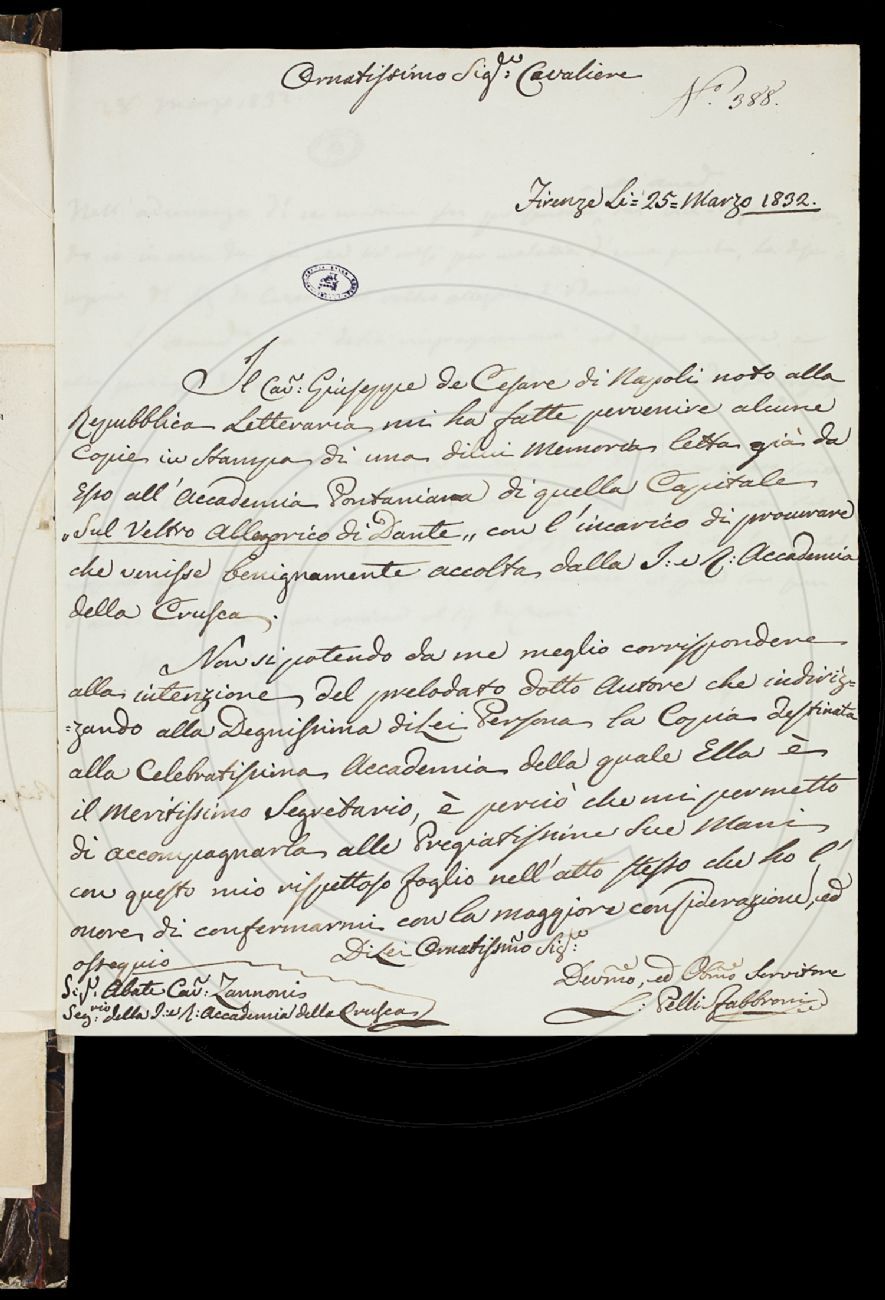 Ornatissimo Sig.re Cavaliere
N.o 388.
Firenze Li= 25= Marzo 1832.
Il Cav: Giuseppe de Cesare di Napoli noto alla
Repubblica Letteraria mi ha fatte pervenire alcune
Copie in Stampa di una dilui Memoria letta già da
Esso all'Accademia Pontaniana di quella Capitale
"Sul Veltro Allegorico di Dante" con l'incarico di procurare
che venisse benignamente accolta dalla I: e R: Accademia
della Crusca.
Non si potendo da me meglio corrispondere
alla intenzione del prelodato dotto Autore che indiriz=
=zando alla Degnissima diLei Persona la Copia destinata
alla Celebratissima Accademia della quale Ella è
il Meritissimo Segretario, è perciò che mi permetto
di accompagnarla alle Pregiatissime Sue Mani
con questo mio rispettoso foglio nell'atto stesso che ho l'
onore di confermarmi con la maggiore considerazione, ed
ossequio
DiLei Ornatissmo Sig.re
Devmo, ed Obmo Servitore
L: Pelli Fabbroni
Sig.r Abate Cav: Zannoni
Seg.rio della I: e R: Accademia della Crusca